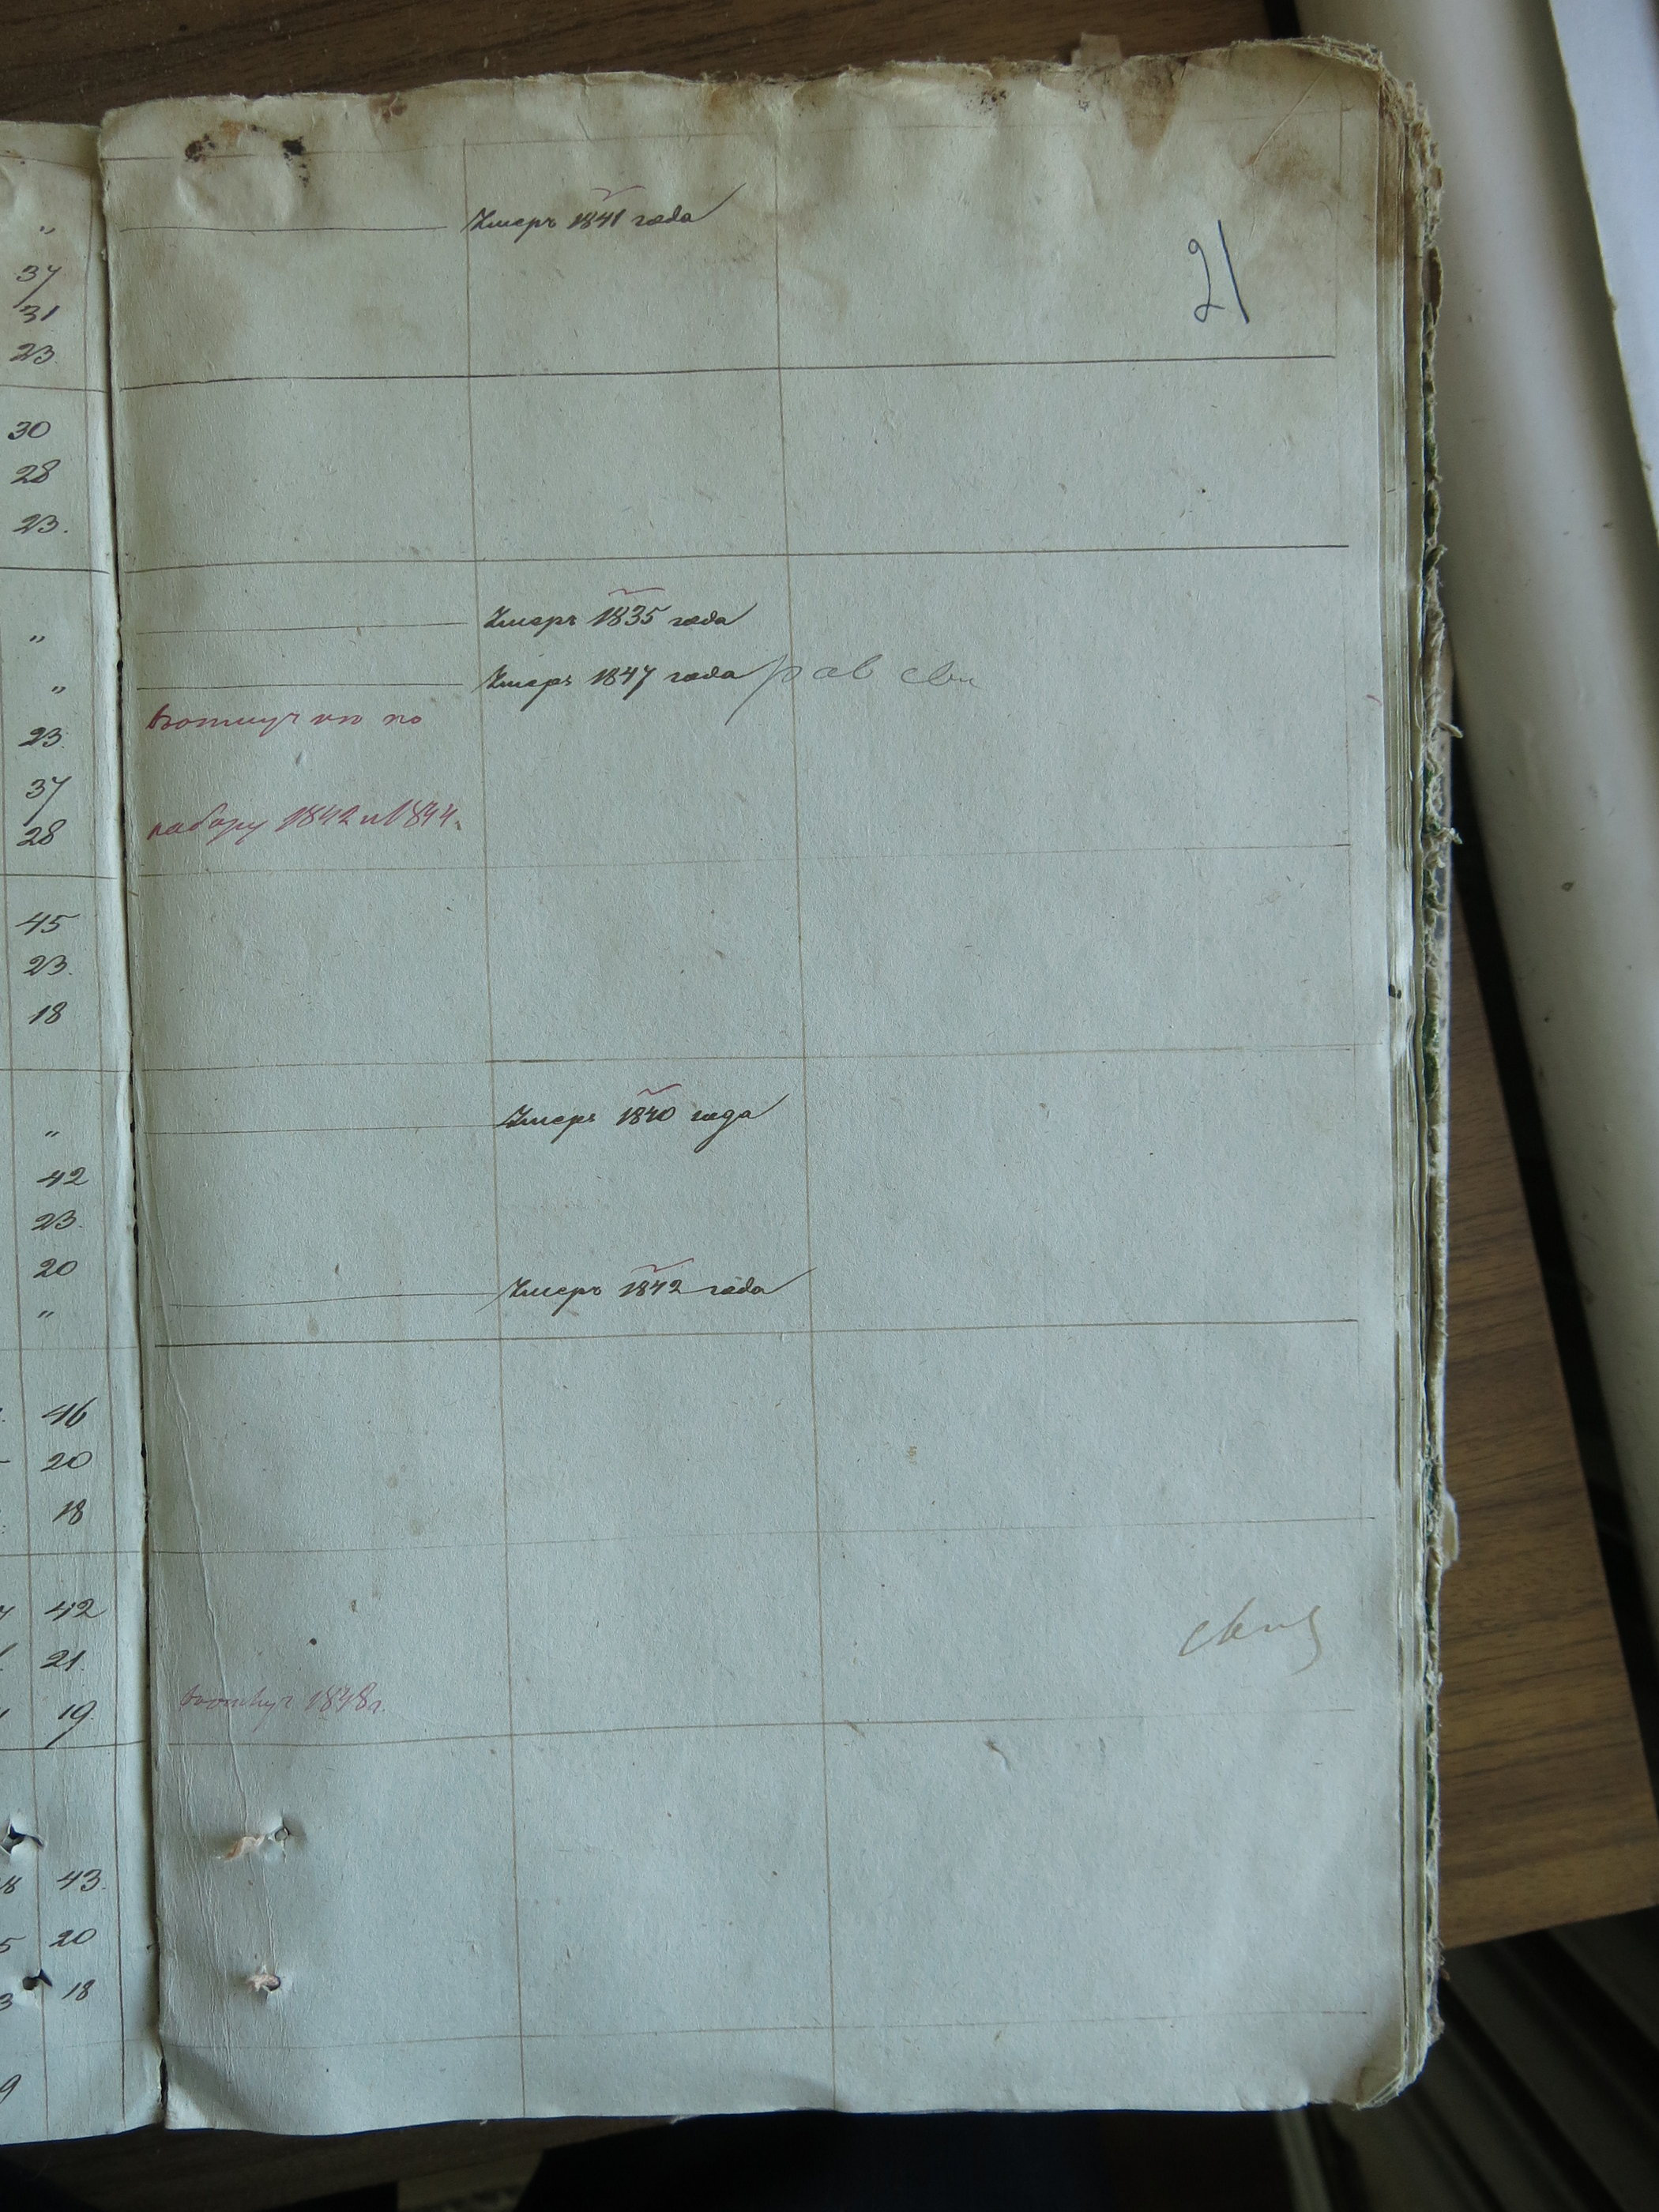 "
37
31
23.
30
28
23.
"
"
23.
37
28
45
23.
18
"
42
23.
20
"
46
20
18
42
21.
19.
43.
20
18
9
21
Умеръ 1841 года
Умеръ 1835 года
Умеръ 1847 года
по
набору 1842 и 1844.
Умеръ 1840 года
Умеръ 1842 года
1848 г.